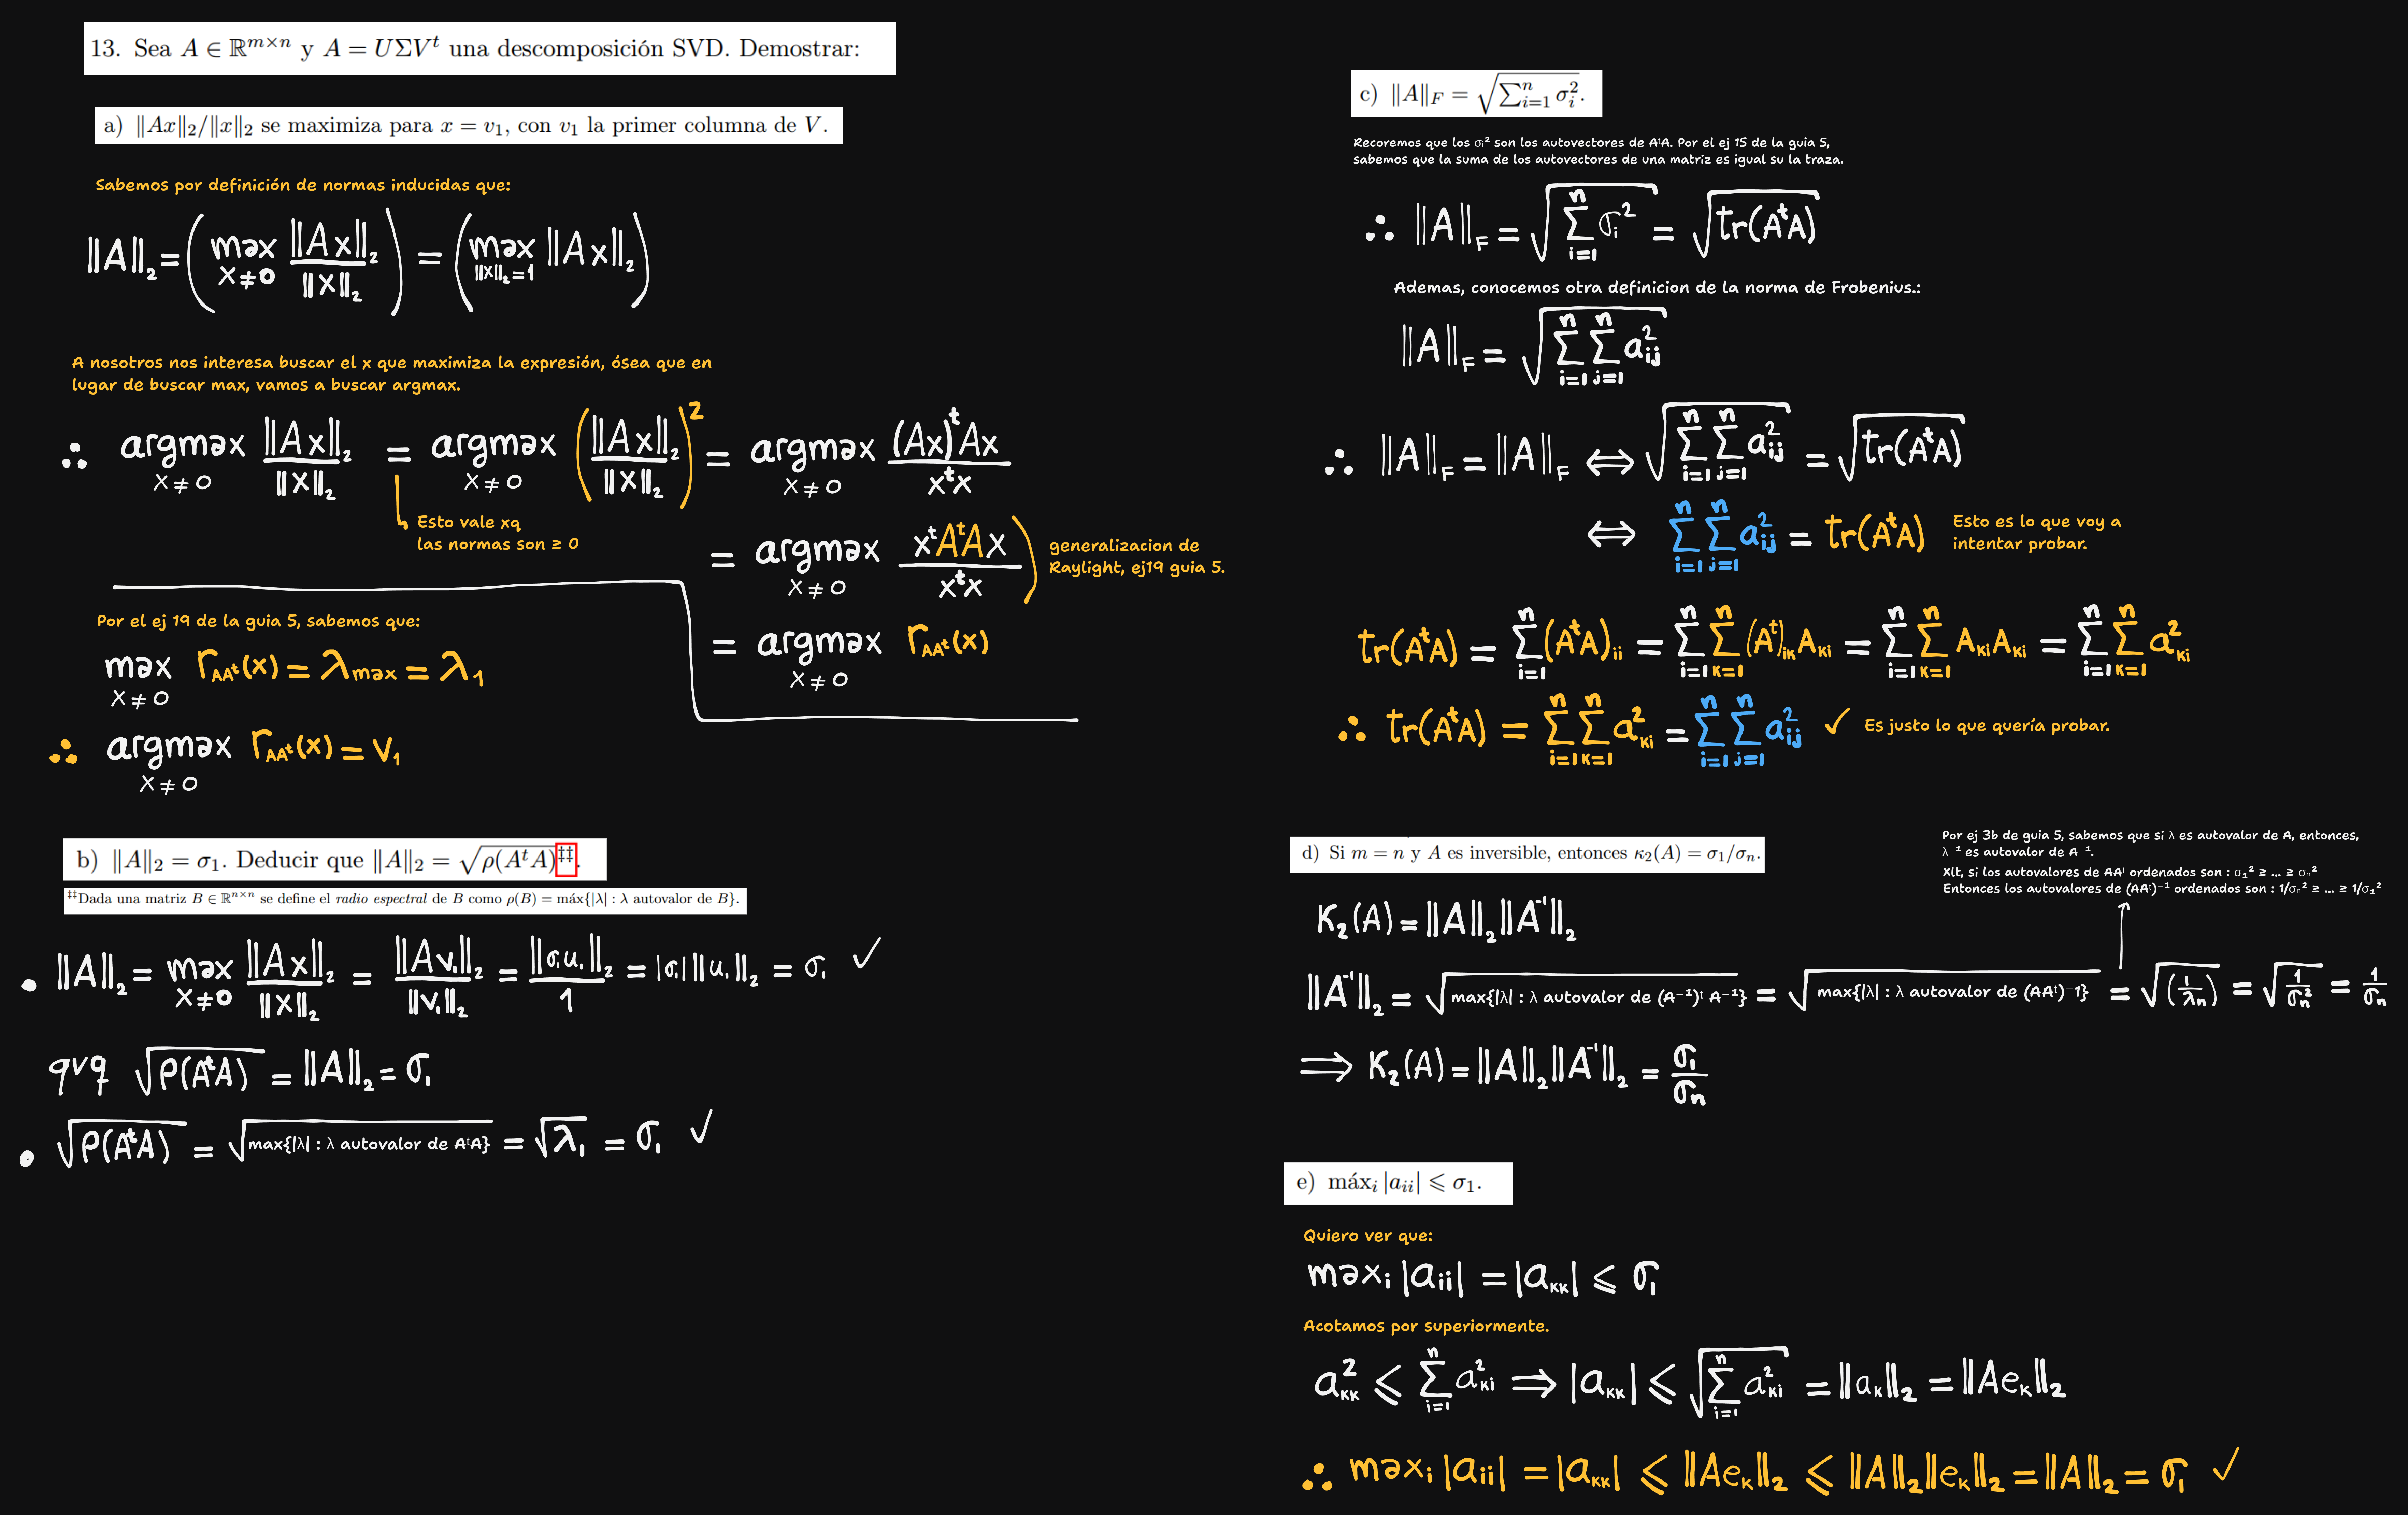 13. Sea A ∈ ℝ^{m×n} y A = UΣV^t una descomposición SVD. Demostrar:
a) ‖Ax‖₂/‖x‖₂ se maximiza para x = v₁, con v₁ la primer columna de V.
Sabemos por definición de normas inducidas que:
‖A‖₂ = ( max_{x≠0} ‖Ax‖₂/‖x‖₂ ) = ( max_{‖x‖₂=1} ‖Ax‖₂ )
A nosotros nos interesa buscar el x que maximiza la expresión, ósea que en
lugar de buscar max, vamos a buscar argmax.
∴ argmax_{x≠0} ‖Ax‖₂/‖x‖₂ = argmax_{x≠0} ( ‖Ax‖₂/‖x‖₂ )² = argmax_{x≠0} (Ax)^t Ax / x^t x
Esto vale xq
las normas son ≥ 0
= argmax_{x≠0} x^t A^t A x / x^t x
generalizacion de
Raylight, ej19 guia 5.
= argmax_{x≠0} r_{AA^t}(x)
Por el ej 19 de la guia 5, sabemos que:
max_{x≠0} r_{AA^t}(x) = λ_{max} = λ₁
∴ argmax_{x≠0} r_{AA^t}(x) = v₁
b) ‖A‖₂ = σ₁. Deducir que ‖A‖₂ = √ρ(A^tA)^{‡‡}.
‡‡Dada una matriz B ∈ ℝ^{n×n} se define el radio espectral de B como ρ(B) = máx{|λ| : λ autovalor de B}.
• ‖A‖₂ = max_{x≠0} ‖Ax‖₂/‖x‖₂ = ‖Av₁‖₂/‖v₁‖₂ = ‖σ₁u₁‖₂/1 = |σ₁|‖u₁‖₂ = σ₁ ✓
qvq √ρ(A^tA) = ‖A‖₂ = σ₁
• √ρ(A^tA) = √max{|λ| : λ autovalor de AᵗA} = √λ₁ = σ₁ ✓
c) ‖A‖_F = √∑_{i=1}^{n} σ_i².
Recoremos que los σᵢ² son los autovectores de AᵗA. Por el ej 15 de la guia 5,
sabemos que la suma de los autovectores de una matriz es igual su la traza.
∴ ‖A‖_F = √∑_{i=1}^{n} σ_i² = √tr(A^tA)
Ademas, conocemos otra definicion de la norma de Frobenius.:
‖A‖_F = √∑_{i=1}^{n} ∑_{j=1}^{n} a_{ij}²
∴ ‖A‖_F = ‖A‖_F ⟺ √∑_{i=1}^{n} ∑_{j=1}^{n} a_{ij}² = √tr(A^tA)
⟺ ∑_{i=1}^{n} ∑_{j=1}^{n} a_{ij}² = tr(A^tA)
Esto es lo que voy a
intentar probar.
tr(A^tA) = ∑_{i=1}^{n} (A^tA)_{ii} = ∑_{i=1}^{n} ∑_{k=1}^{n} (A^t)_{ik} A_{ki} = ∑_{i=1}^{n} ∑_{k=1}^{n} A_{ki} A_{ki} = ∑_{i=1}^{n} ∑_{k=1}^{n} a_{ki}²
∴ tr(A^tA) = ∑_{i=1}^{n} ∑_{k=1}^{n} a_{ki}² = ∑_{i=1}^{n} ∑_{j=1}^{n} a_{ij}² ✓ Es justo lo que quería probar.
d) Si m = n y A es inversible, entonces κ₂(A) = σ₁/σₙ.
Por ej 3b de guia 5, sabemos que si λ es autovalor de A, entonces,
λ⁻¹ es autovalor de A⁻¹.
Xlt, si los autovalores de AAᵗ ordenados son : σ₁² ≥ ... ≥ σₙ²
Entonces los autovalores de (AAᵗ)⁻¹ ordenados son : 1/σₙ² ≥ ... ≥ 1/σ₁²
K₂(A) = ‖A‖₂‖A⁻¹‖₂
‖A⁻¹‖₂ = √max{|λ| : λ autovalor de (A⁻¹)ᵗ A⁻¹} = √max{|λ| : λ autovalor de (AAᵗ)⁻1} = √(1/λₙ) = √1/σₙ² = 1/σₙ
⟹ K₂(A) = ‖A‖₂‖A⁻¹‖₂ = σ₁/σₙ
e) máxᵢ |aᵢᵢ| ⩽ σ₁.
Quiero ver que:
maxᵢ |aᵢᵢ| = |a_{kk}| ⩽ σ₁
Acotamos por superiormente.
a_{kk}² ⩽ ∑_{i=1}^{n} a_{ki}² ⟹ |a_{kk}| ⩽ √∑_{i=1}^{n} a_{ki}² = ‖a_k‖₂ = ‖Ae_k‖₂
∴ maxᵢ |aᵢᵢ| = |a_{kk}| ⩽ ‖Ae_k‖₂ ⩽ ‖A‖₂‖e_k‖₂ = ‖A‖₂ = σ₁ ✓